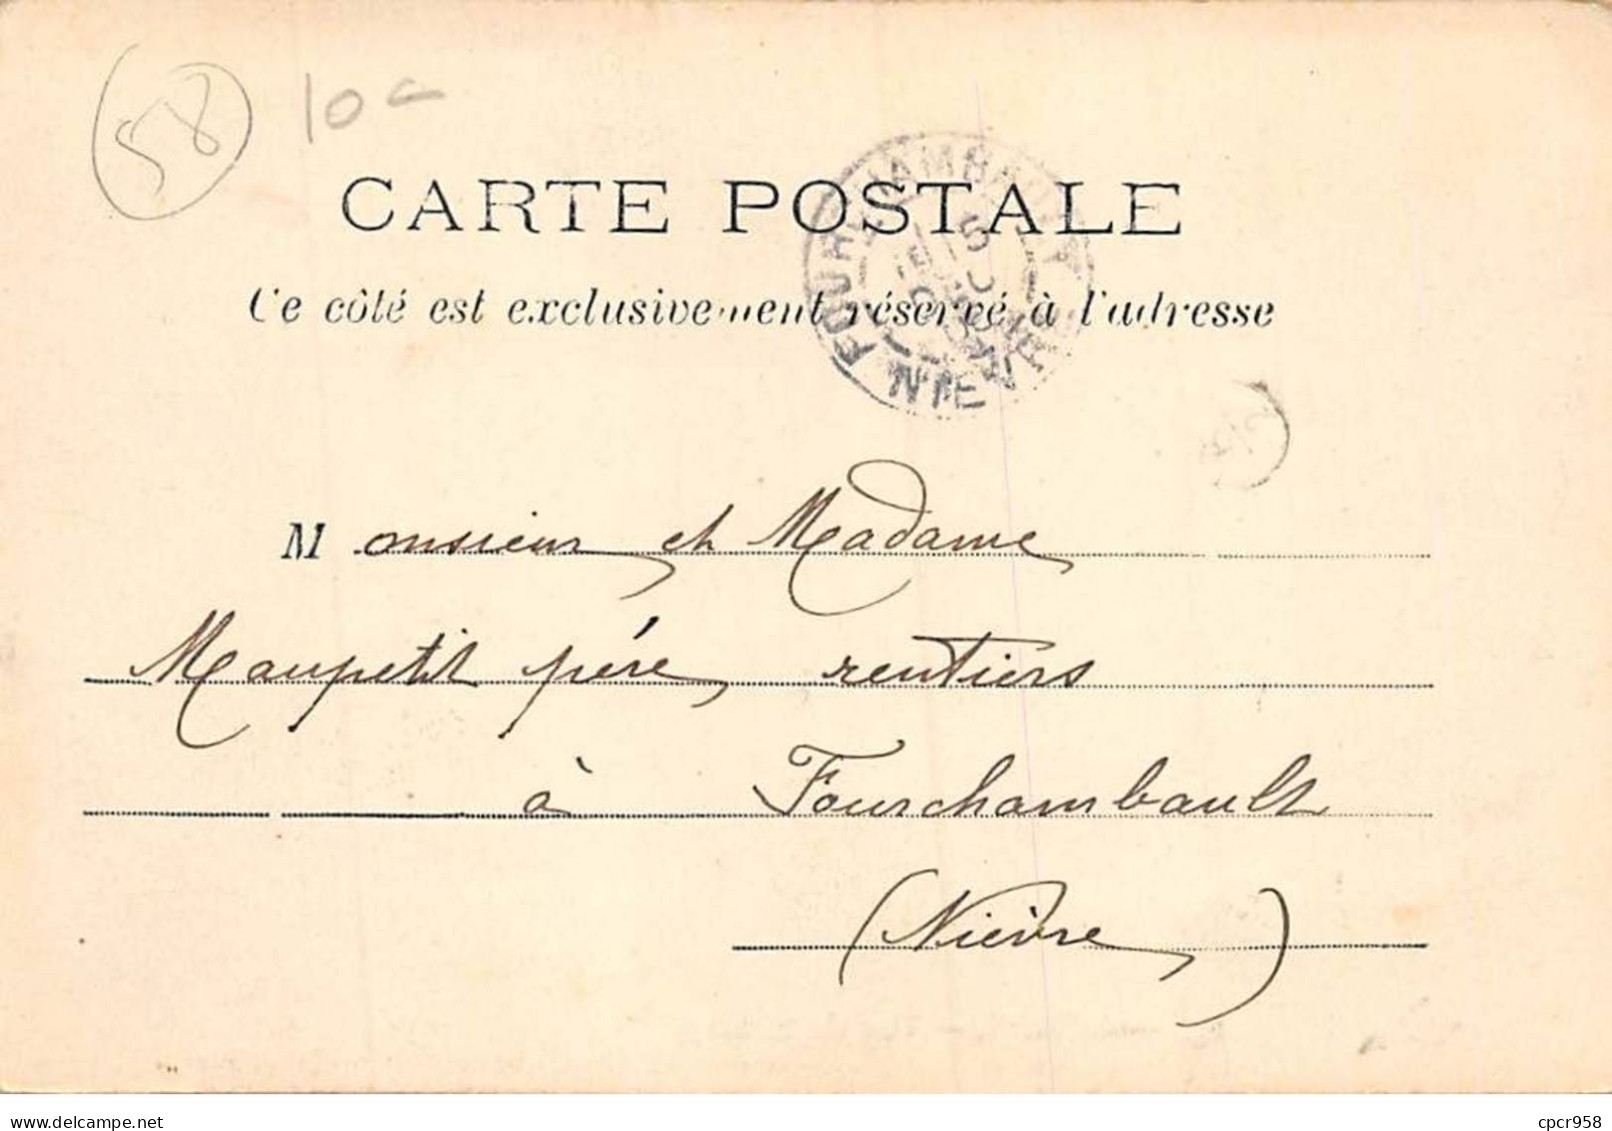 58 10
CARTE POSTALE
Ce côté est exclusivement réservé à l'adresse
FOURCHAMBAULT
NIEVRE
Monsieur et Madame
Maupetit père, rentiers
à Fourchambault
(Nièvre)
delcampe.net
cpcr958